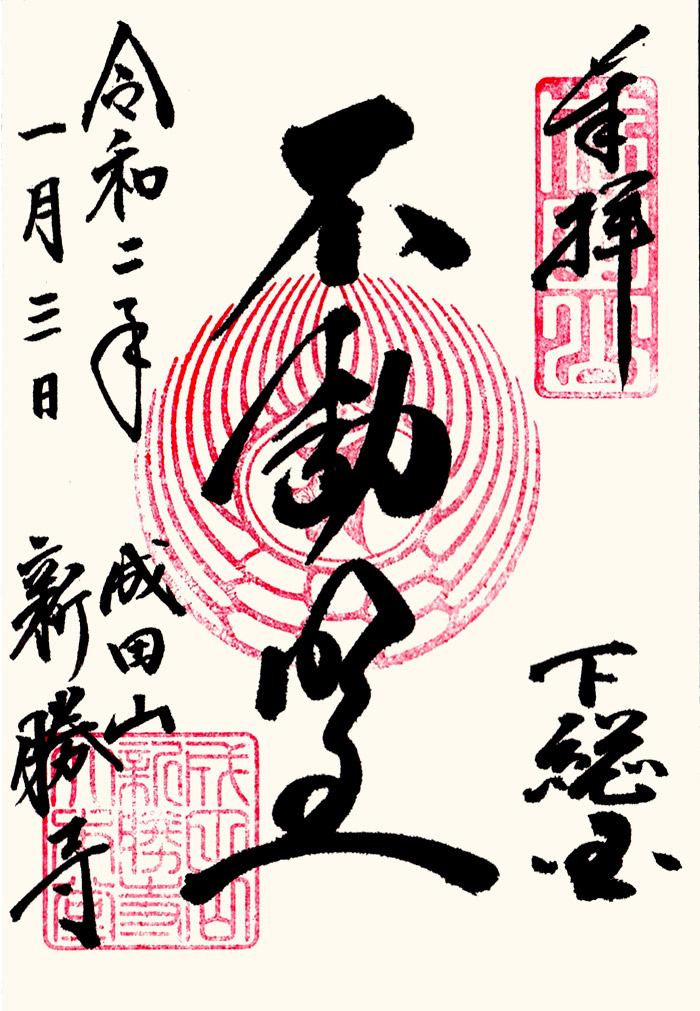 奉拝
下総国
不動明王
令和二年
一月三日
成田山
新勝寺
成田山
新勝寺
大本堂